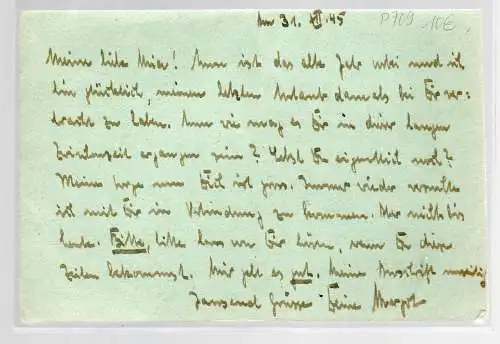 Am 31. XII 45
P709 10€
Meine liebe Mia! Nun ist das alte Jahr und ich
bin glücklich, meinen letzten Urlaub damals bei Dir ver-
bracht zu haben. Nun wie mag es Dir in dieser langen
Zwischenzeit ergangen sein? Lebst Du eigentlich noch?
Meine Sorge um Dich ist gross. Immer wieder versuchte
ich mit Dir in Verbindung zu kommen. Nur nichts bis
heute. Bitte, bitte lass von Dir hören, wenn Du diese
Zeilen bekommst. Mir geht es gut. Meine Anschrift umseitig
Tausend Grüsse Deine Margot